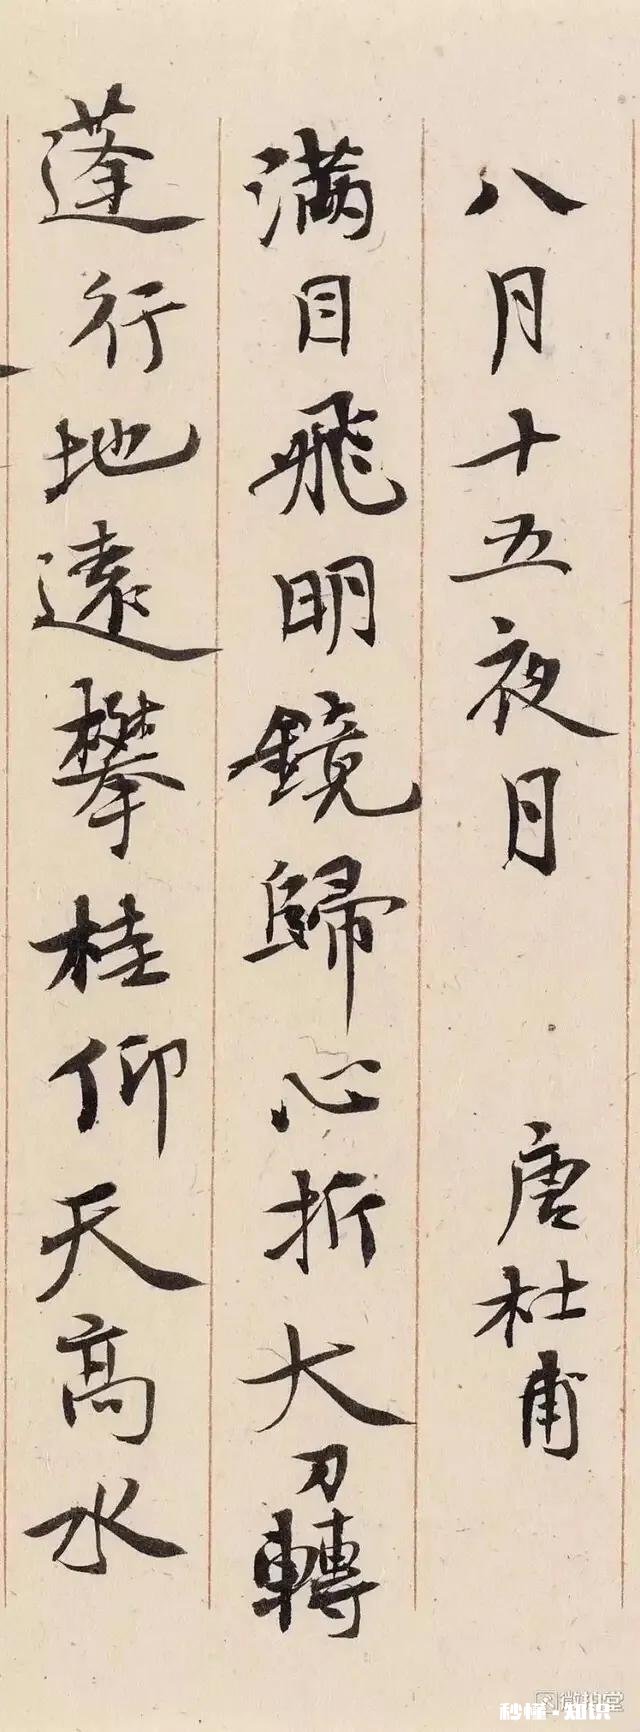 八月十五夜月 唐杜甫
满目飛明鏡歸心折大刀轉
蓬行地遠攀桂仰天高水
微拍堂
秒懂·知识